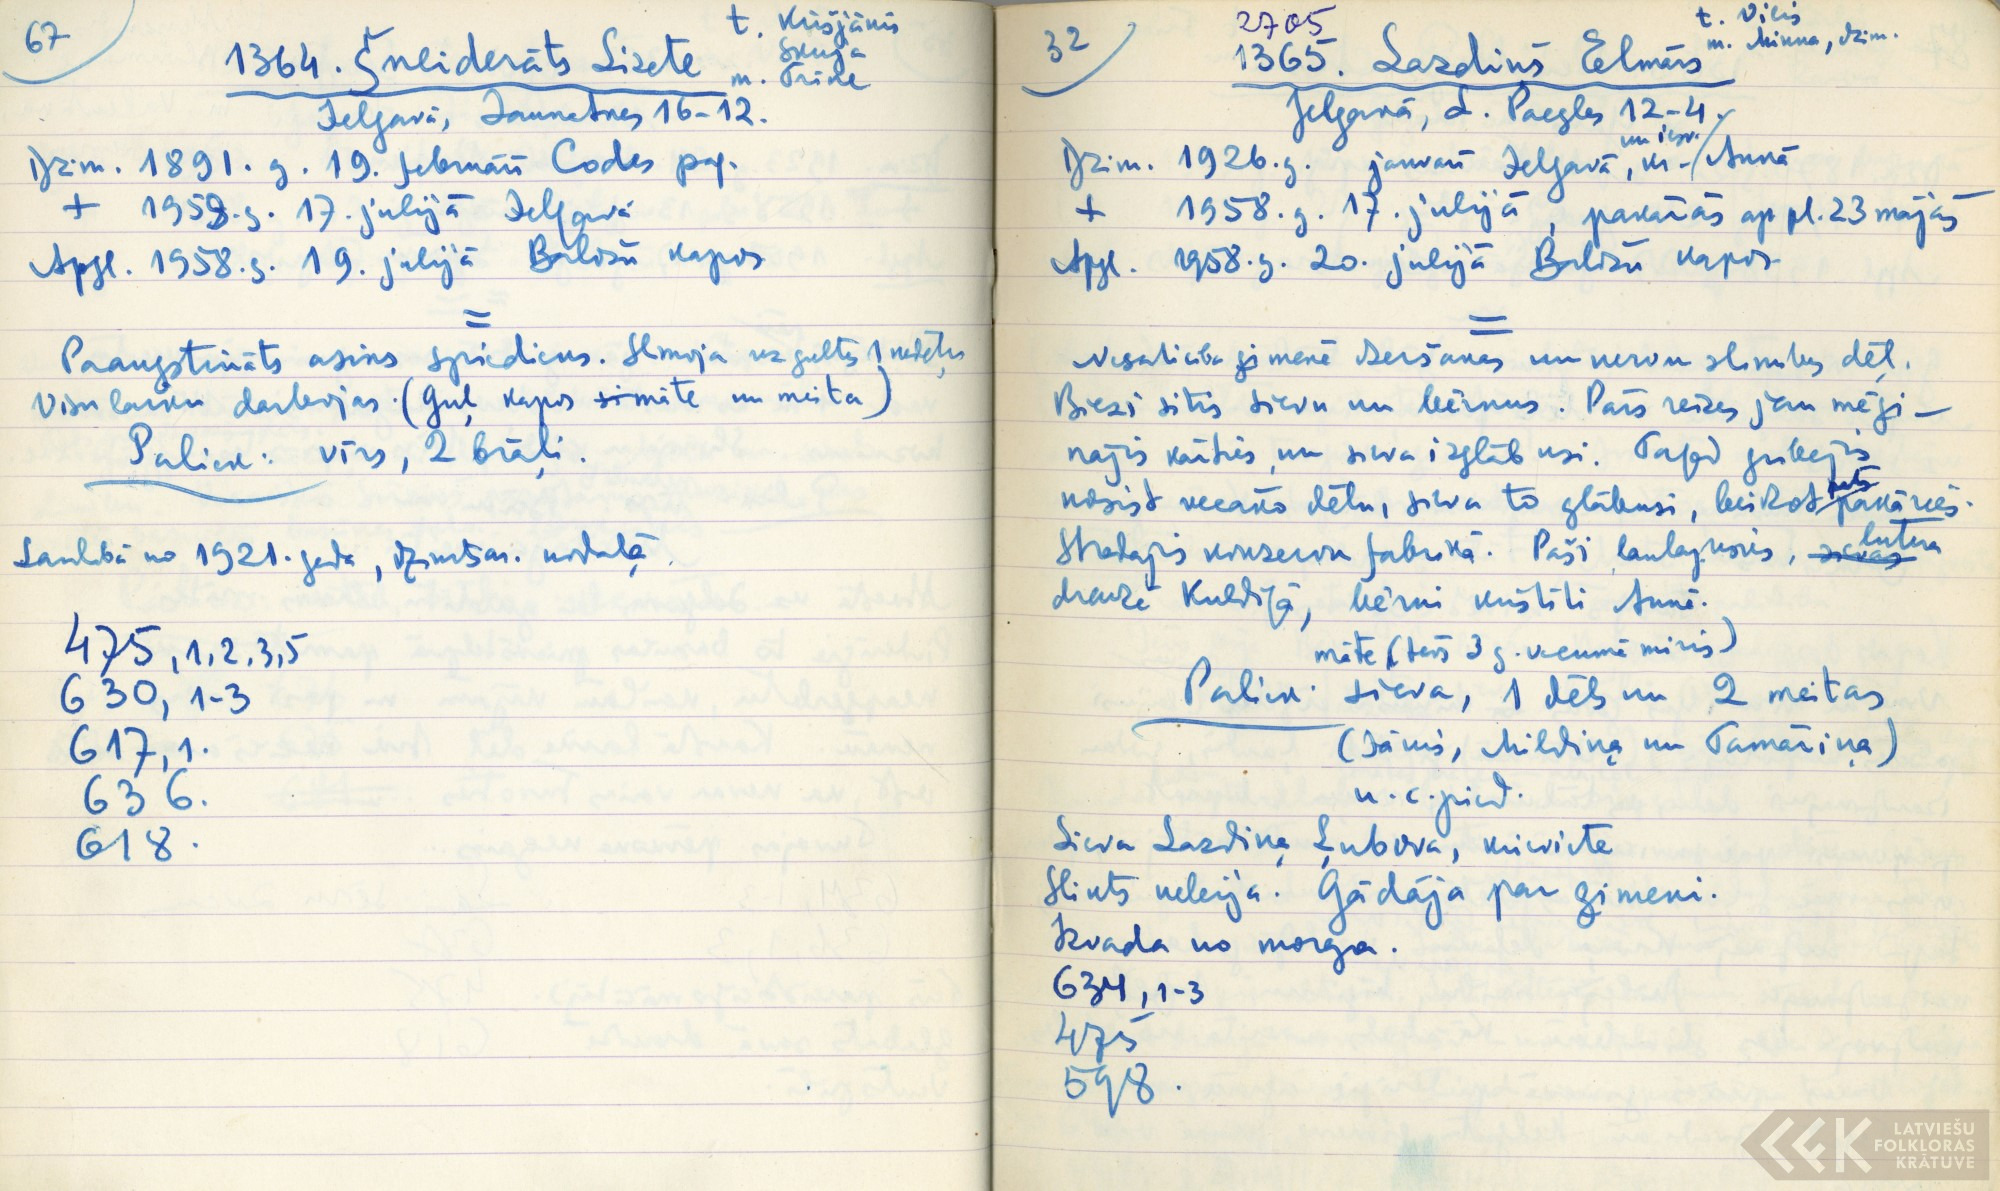 67
t. Krišjānis
Skuja
m. Trīne
1364. Šneiderāts Lizete
Jelgavā, Jaunatnes 16-12.
Dzim. 1891. g. 19. februārī Codes pag.
+ 1958. g. 17. jūlijā Jelgavā
Apgl. 1958. g. 19. jūlijā Bērzu kapos
=
Paaugstināts asins spiediens. Slimoja uz gultas 1 nedēļu
Visu laiku darbojas. (Guļ kapos māte un meita)
Paliek: vīrs, 2 brāļi.
Laulībā no 1921. gada, dzimtsar. nodaļā.
475, 1, 2, 3, 5
630, 1-3
617, 1.
636.
618.
32
2705
t. Vilis
m. Minna, dzim.
1365. Lazdiņš Elmārs
Jelgavā, L. Paegles 12-4.
un iesv.
Dzim. 1926. g. janvārī Jelgavā, kr. Annā
+ 1958. g. 17. jūlijā, pakāries ap pl. 23 mājās
Apgl. 1958. g. 20. jūlijā Bērzu kapos
=
Nesaticība ģimenē dzeršanas un nervu slimības dēļ.
Bieži sitis sievu un bērnus. Pats reizes jau mēģi-
nājis kārties, un sieva izglābusi. Tagad gribējis
nosist vecāko dēlu, sieva to glābusi, beidzot pats pakāries.
Strādājis konservu fabrikā. Paši laulājušies, sievas lutera
draudzē Kuldīgā, bērni kristīti Annā.
māte (tēvs 3 g. vecumā miris)
Paliek: sieva, 1 dēls un 2 meitas
(Jānis, Mildiņa un Tamāriņa)
u. c. pied.
Sieva Lazdiņa Ļubova, krieviete
Slikts nebija. Gādāja par ģimeni.
Izvada no morga.
634, 1-3
475
598.
LATVIEŠU
FOLKLORAS
KRĀTUVE